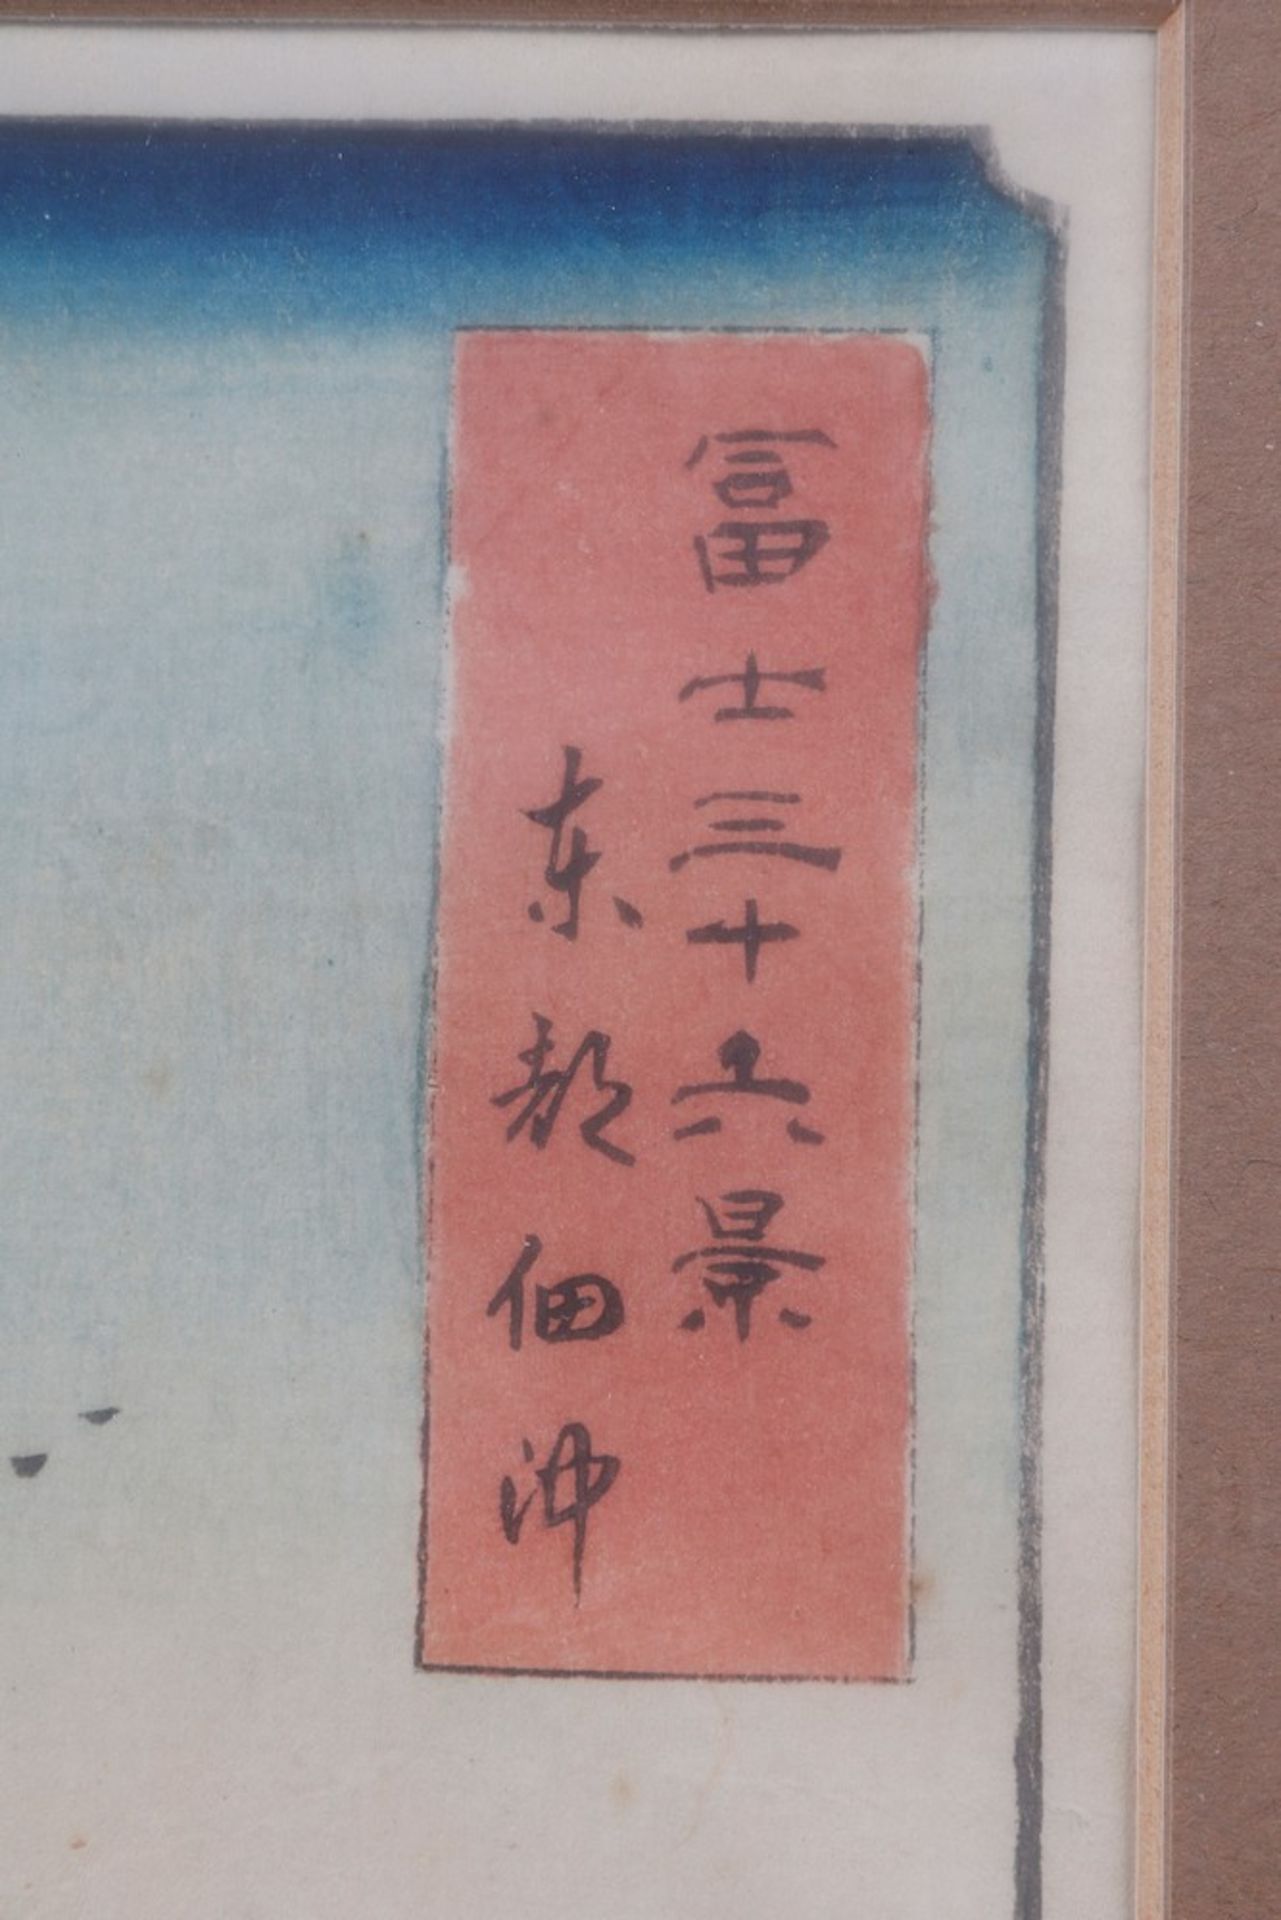 冨士三十六景
東都佃沖